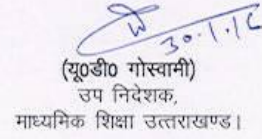 30.1.16
(यू०डी० गोस्वामी)
उप निदेशक,
माध्यमिक शिक्षा उत्तराखण्ड।